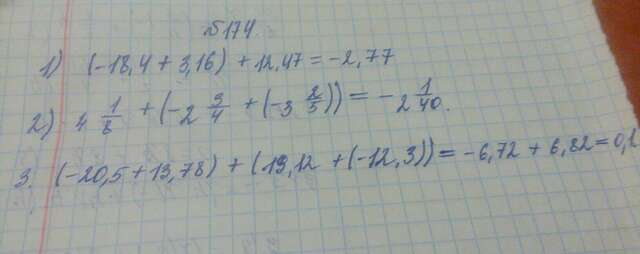 №174.
1) (-18,4 + 3,16) + 12,47 = -2,77
2) 4 1/8 + (-2 3/4 + (-3 2/5)) = -2 1/40.
3. (-20,5 + 13,78) + (19,12 + (-12,3)) = -6,72 + 6,82 = 0,1